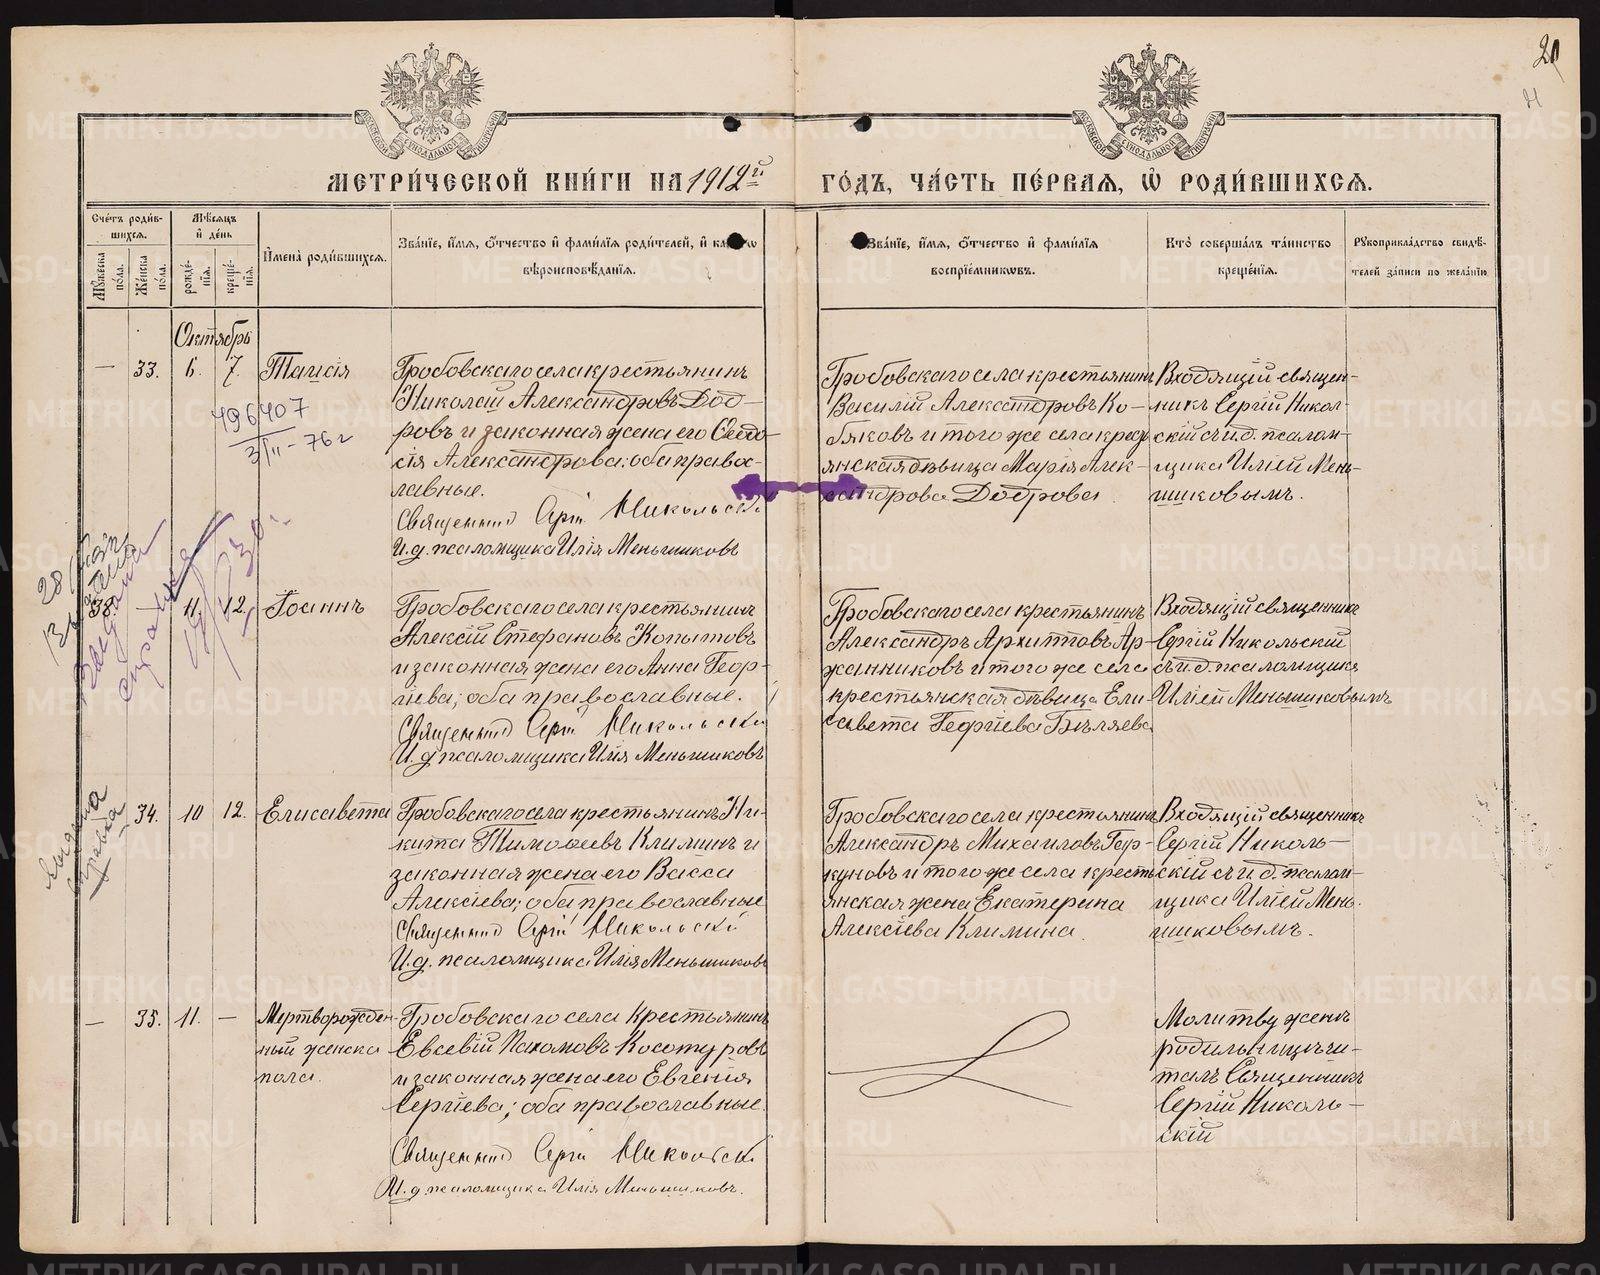 20
21
МЕТРИ́ЧЕСКОЙ КНИ́ГИ НА 1912й ГО́ДЪ, ЧА́СТЬ ПЕ́РВАЯ, Ѡ҆ РОДИ́ВШИХСЯ.
Сче́тъ роди́в-
шихся.
Му́жеска по́ла.
Же́нска по́ла.
Мѣ́сяцъ и҆ де́нь
рожде́-нїя.
креще́-нїя.
И҆мена̀ роди́вшихся.
Зва́нїе, и҆́мя, ѻ҆́тчество и҆ фами́лїя роди́телей, и҆
вѣроисповѣ́данїя.
Зва́нїе, и҆́мя, ѻ҆́тчество и҆ фами́лїя
воспрїе́мниковъ.
Кто̀ соверша́лъ та́инство
креще́нїя.
Рукоприкла́дство свидѣ́-
телей за́писи по жела́нїю
Октябрь
— 33. 6. 7. Таисія
Гробовскаго села крестьянинъ
Николай Александровъ Дод-
ровъ и законная жена его Ѳеодо-
сія Александрова; оба правос-
лавные.
Священник Сергій Никольскій
И.д. псаломщика Илія Меньшиковъ
Гробовскаго села крестьянинъ
Василій Александровъ Ко-
бяковъ и того же села кресть
янская дѣвица Марія Алек-
сандрова Додрова.
Входящій священ-
никъ Сергій Николь-
скій съ и.д. псалом-
щика Иліей Мень-
шиковымъ.
496407
3/II - 76 г
38. 11. 12. Іоаннъ
Гробовскаго села крестьянинъ
Алексій Стефановъ Копытовъ
и законная жена его Анна Геор-
гіева; оба православные.
Священник Сергій Никольскій
И.д. псаломщика Илія Меньшиковъ
Гробовскаго села крестьянинъ
Александръ Архиповъ Ар-
жанниковъ и того же села
крестьянская дѣвица Ели-
савета Георгіева Бѣляева
Входящій священникъ
Сергій Никольский
съ и.д. псаломщика
Иліей Меньшиковымъ
выдана
справка
34. 10 12. Елисавета
Гробовскаго села крестьянинъ Ни-
кита Тимоѳеевъ Климинъ и
законная жена его Васса
Алексіева; оба православные
Священник Сергій Никольскій
И.д. псаломщика Илія Меньшиковъ
Гробовскаго села крестьянинъ
Александръ Михаиловъ Гор-
куновъ и того же села кресть
янская жена Екатерина
Алексіева Климина.
Входящій священникъ
Сергій Николь-
скій съ и.д. псалом-
щика Иліей Мень-
шиковымъ.
— 35. 11. — Мертворожден-
ный женска
пола.
Гробовскаго села крестьянинъ
Евсевій Пахомовъ Косотуровъ
и законная жена его Евгенія
Сергіева; оба православные.
Священник Сергій Никольскій
И.д. псаломщика Илія Меньшиковъ.
Молитву женѣ
родильницѣ чи-
талъ Священникъ
Сергій Николь-
скій